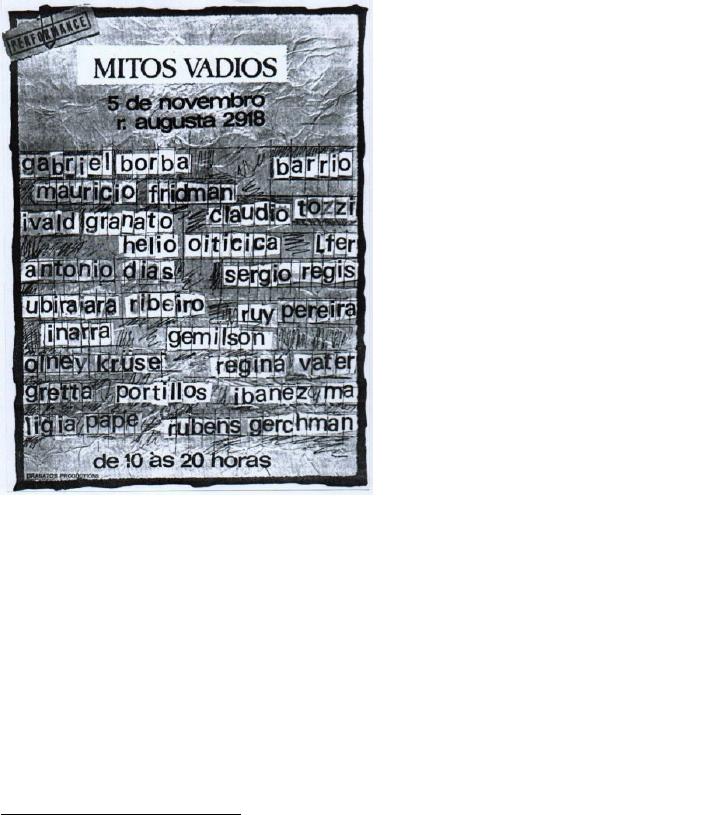 PERFORMANCE
MITOS VADIOS
5 de novembro
r. augusta 2918
gabriel borba barrio
mauricio fridman
ivald granato claudio tozzi
helio oiticica l.fer
antonio dias sergio regis
ubirajara ribeiro ruy pereira
inarra gemilson
olney kruse regina vater
gretta portillos ibanez ma
ligia pape rubens gerchman
de 10 às 20 horas
GRANATO'S PRODUCTIONS